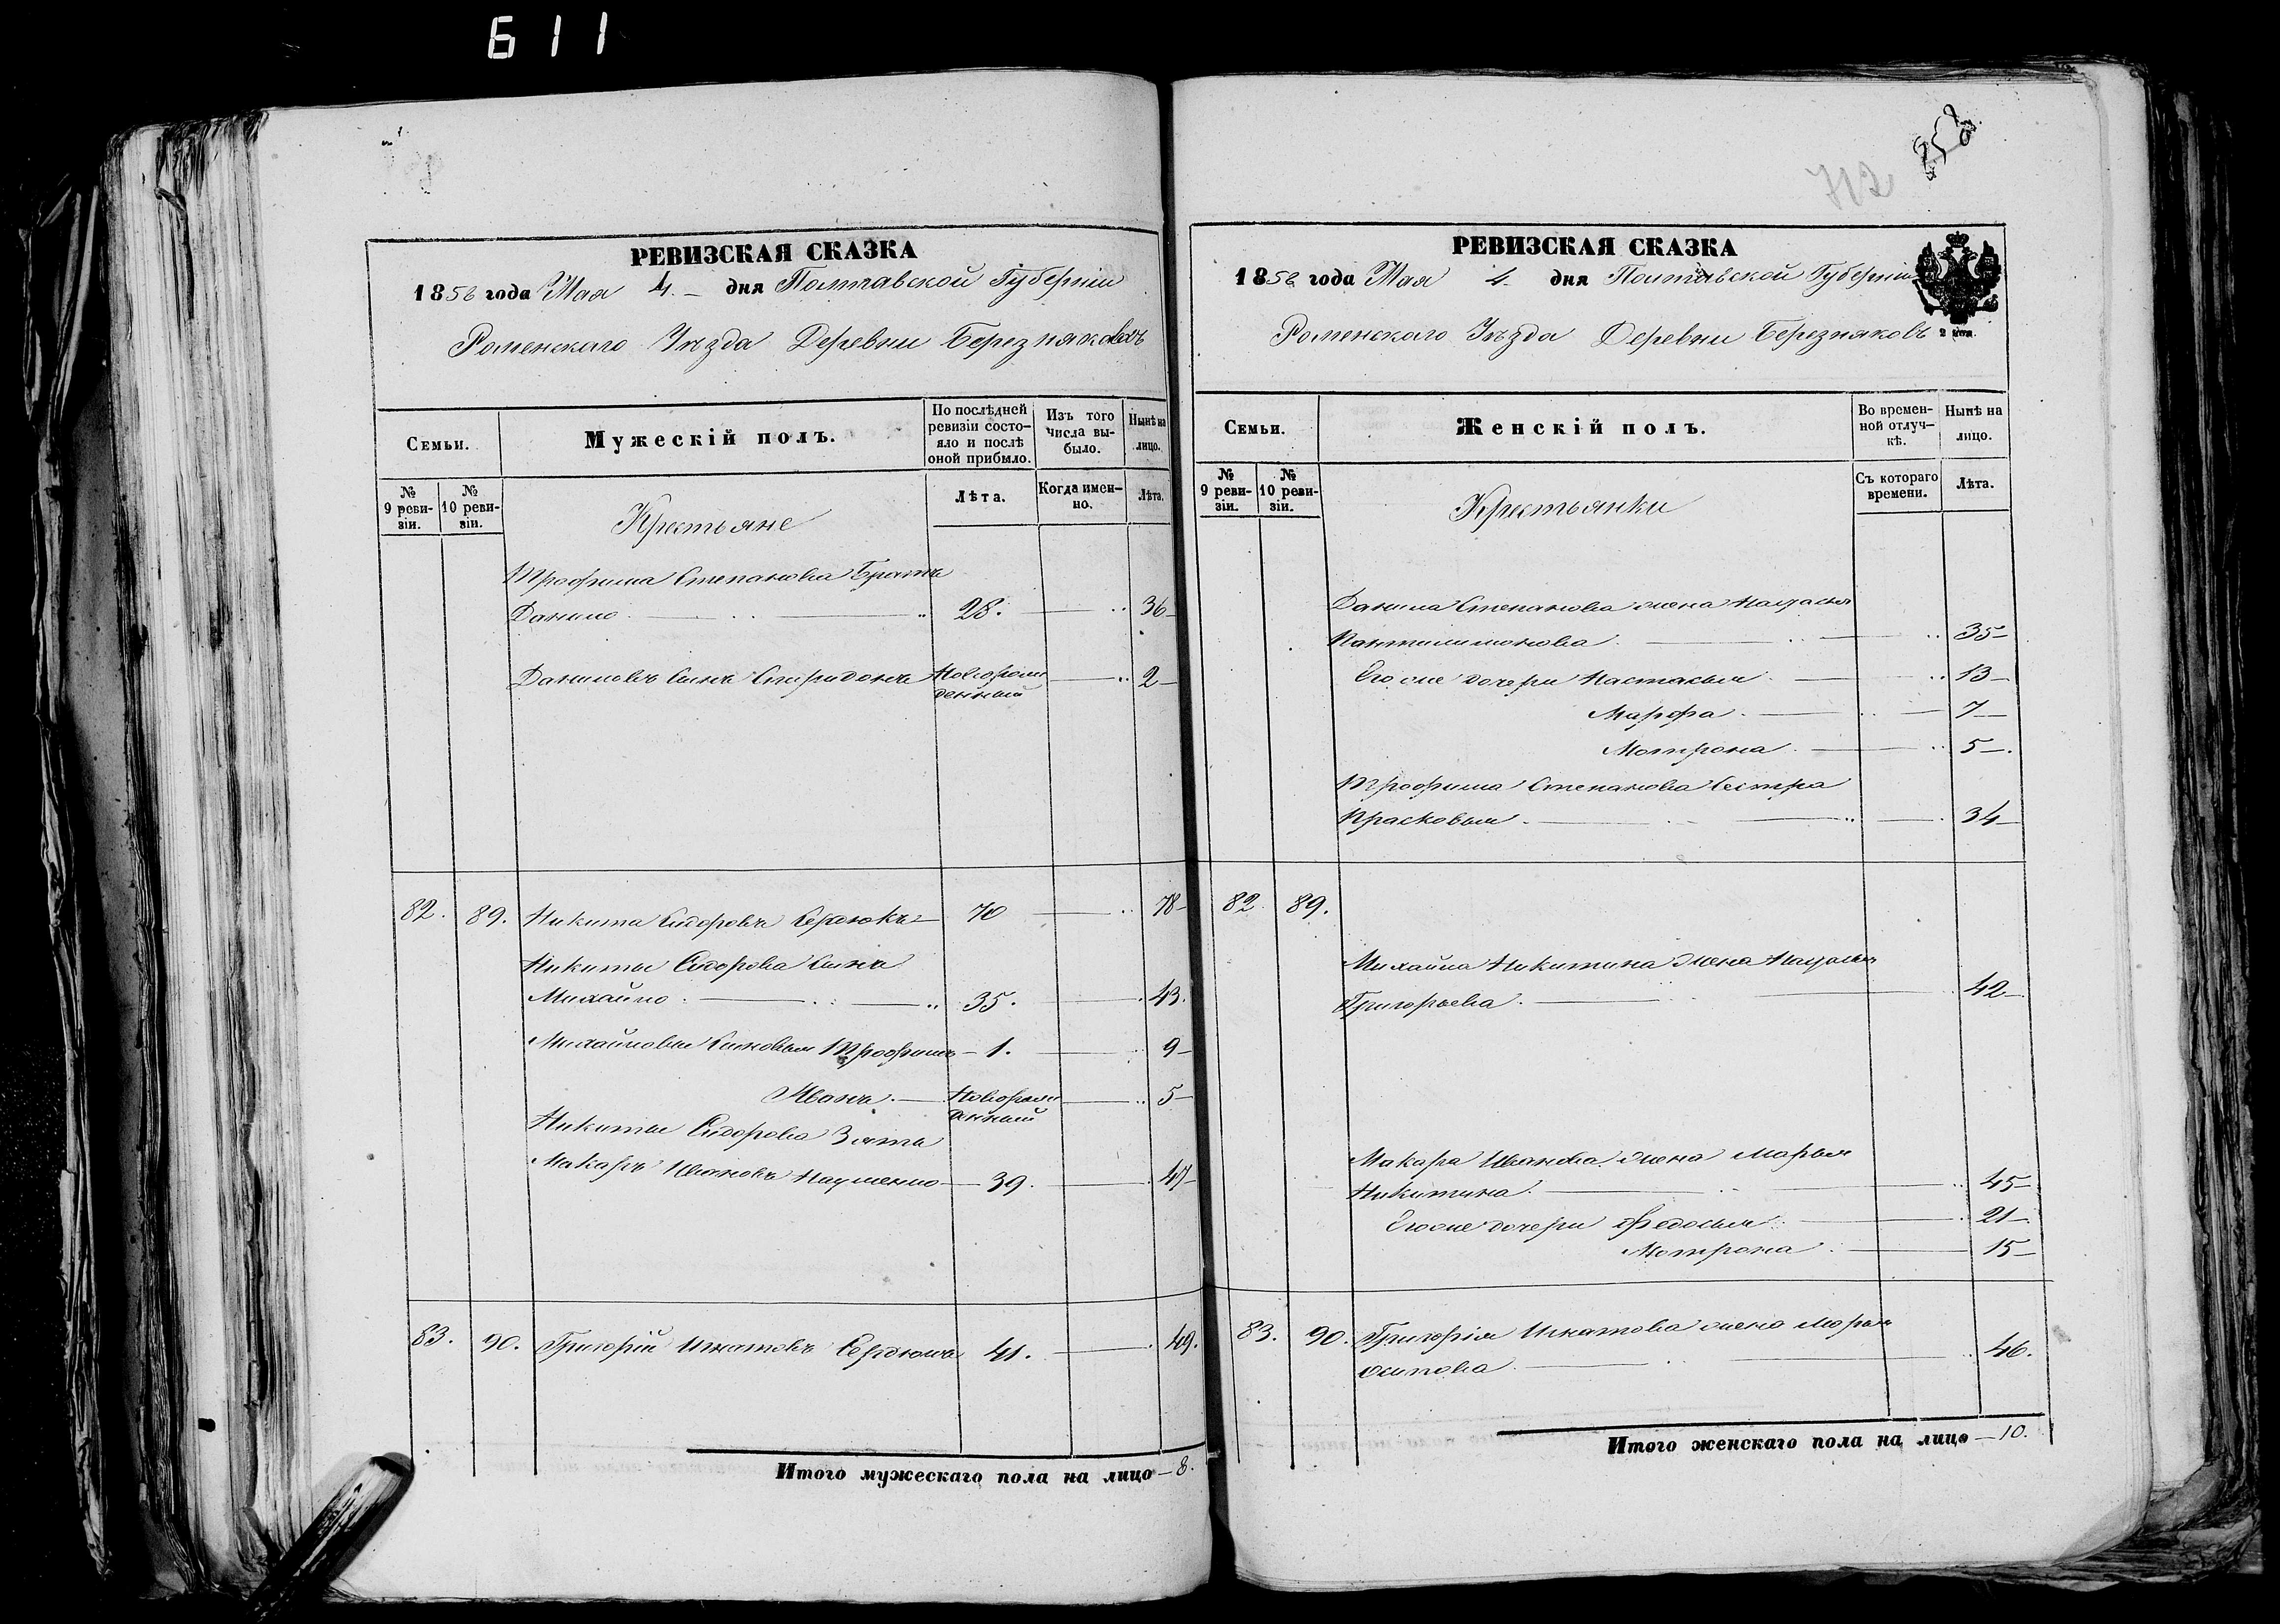 611
РЕВИЗСКАЯ СКАЗКА
1858 года Мая 4. дня Полтавской Губерніи
Роменскаго Уѣзда Деревни Березняковъ
Семьи.
Мужескій полъ.
По послѣдней ревизіи состояло и послѣ оной прибыло.
Изъ того числа выбыло.
Нынѣ на лицо.
№ 9 ревизіи.
№ 10 ревизіи.
Крестьяне
Лѣта.
Когда именно.
Лѣта.
Трофима Степанова Братъ
Данило 28. 36
Даниловъ Сынъ Спиридонъ Новорожденный 2
82. 89. Никита Сидоровъ Сердюкъ 70 78
Никиты Сидорова Сынъ
Михайло 35. 43.
Михайловы Сыновья Трофимъ 1. 9
Иванъ Новорожденный 5
Никиты Сидорова Зять
Макаръ Ивановъ Науменко 39. 47
83. 90. Григорій Игнатовъ Сердюкъ 41. 49.
Итого мужескаго пола на лицо 8.
712
РЕВИЗСКАЯ СКАЗКА
1858 года Мая 4. дня Полтавской Губерніи
Роменскаго Уѣзда Деревни Березняковъ
2 коп.
Семьи.
Женскій полъ.
Во временной отлучкѣ.
Нынѣ на лицо.
№ 9 ревизіи.
№ 10 ревизіи.
Крестьянки
Съ котораго времени.
Лѣта.
Данила Степанова жена Наталья
Пантилимонова 35
Его же дочери Настасья 13
Марфа 7
Мотрона 5
Трофима Степанова Сестра
Прасковья 34
82 89.
Михайла Никитина жена Наталья
Григорьева 42
Макара Иванова жена Марья
Никитина 45
Его же дочери Федосья 21
Мотрона 15
83. 90. Григорія Игнатова жена Марья
Осипова 46.
Итого женскаго пола на лицо 10.